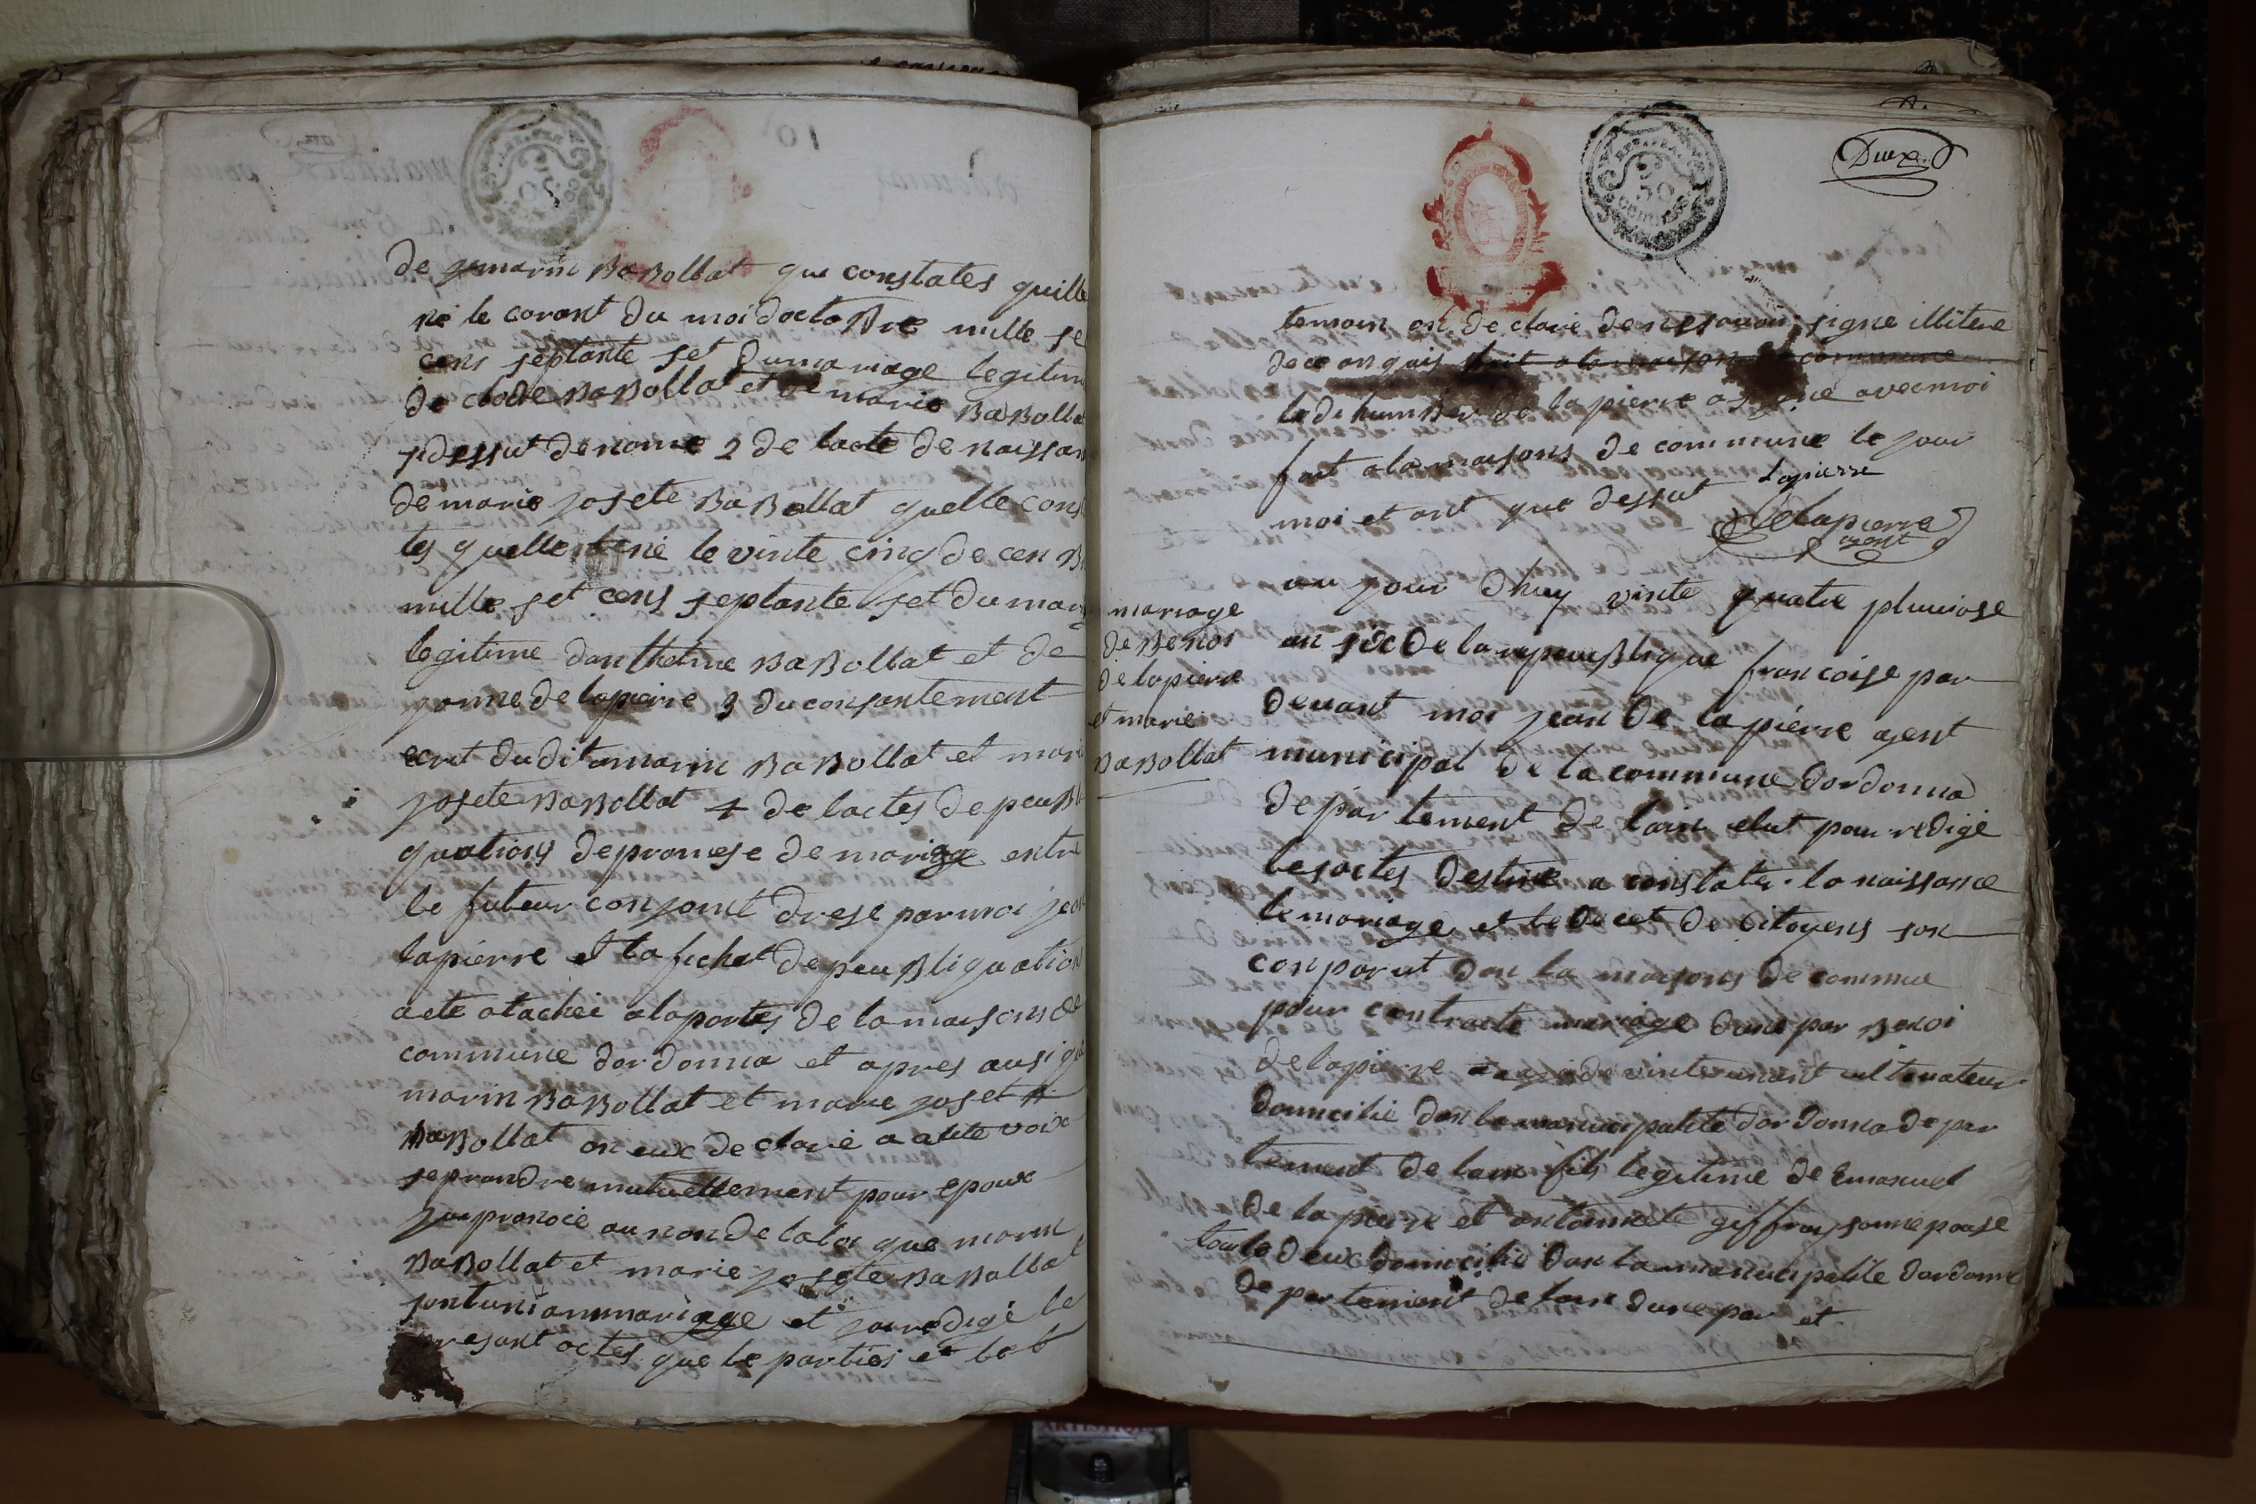 de marin Babollat que constates quille
né le corant du moi doctobre mille se
cens septante set du mariage legitim
de clode Babollat et de marie Babolla
sidessut denomé 2 de lacte de naissan
de marie josete Babollat quelle cons
tes quelle né le vinte cinq de cen b
mille set cens septante set du mari
legitime danthelme Babollat et de
janne de lapierre 3 du consantement
ecrit dudit marin Babollat et mari
josete Babollat 4 de lactes de peubl
quations depromese de mariage entre
le futeur conjoint drese par moi jean
lapierre et lafichat de peubliquation
aete atachei alaportes de lamaisons de
commune dordonna et apres ausi que
marin Babollat et marie joset
Babollat on eux declaré a aute voix
seprandre mutuellement pour epoux
jai pranocé au non de la loi que marin
Babollat et marie josete Babollat
sont uni anmariage et jairedigé le
presant actes que le parties et le
Duex.
temoin on declaré de ne savoir signé illitere
dece anquis fait ala maison de commune
ledi humber de lapierre a signé avec moi
fait ala maisons de commune le jour
moi et ant que dessut Lapierre
Delapierre
agent
mariage
de Benoi
delapierre
et marie
Babollat
au jour dhuy vinte quatre pluviose
an sic de la repeublique francoise par
devant moi jean de lapierre agent
municipal de la commune dordonna
departement de lain elut pour redigé
lesactes destiné a constater la naissance
le mariage et le decet de citoyens son
conparut dan la maisons de commue
pour contracte mariage dune par Benoi
delapierre agé de vinte un ant cultivateur
domicilié dan la municipalité dordonna depar
tement de lain fils legitime de Emanuel
de lapierre et antoinete geffray sonnepouse
tout le deux domicilié dan la municipalité dordonna
departement de lain dune par et